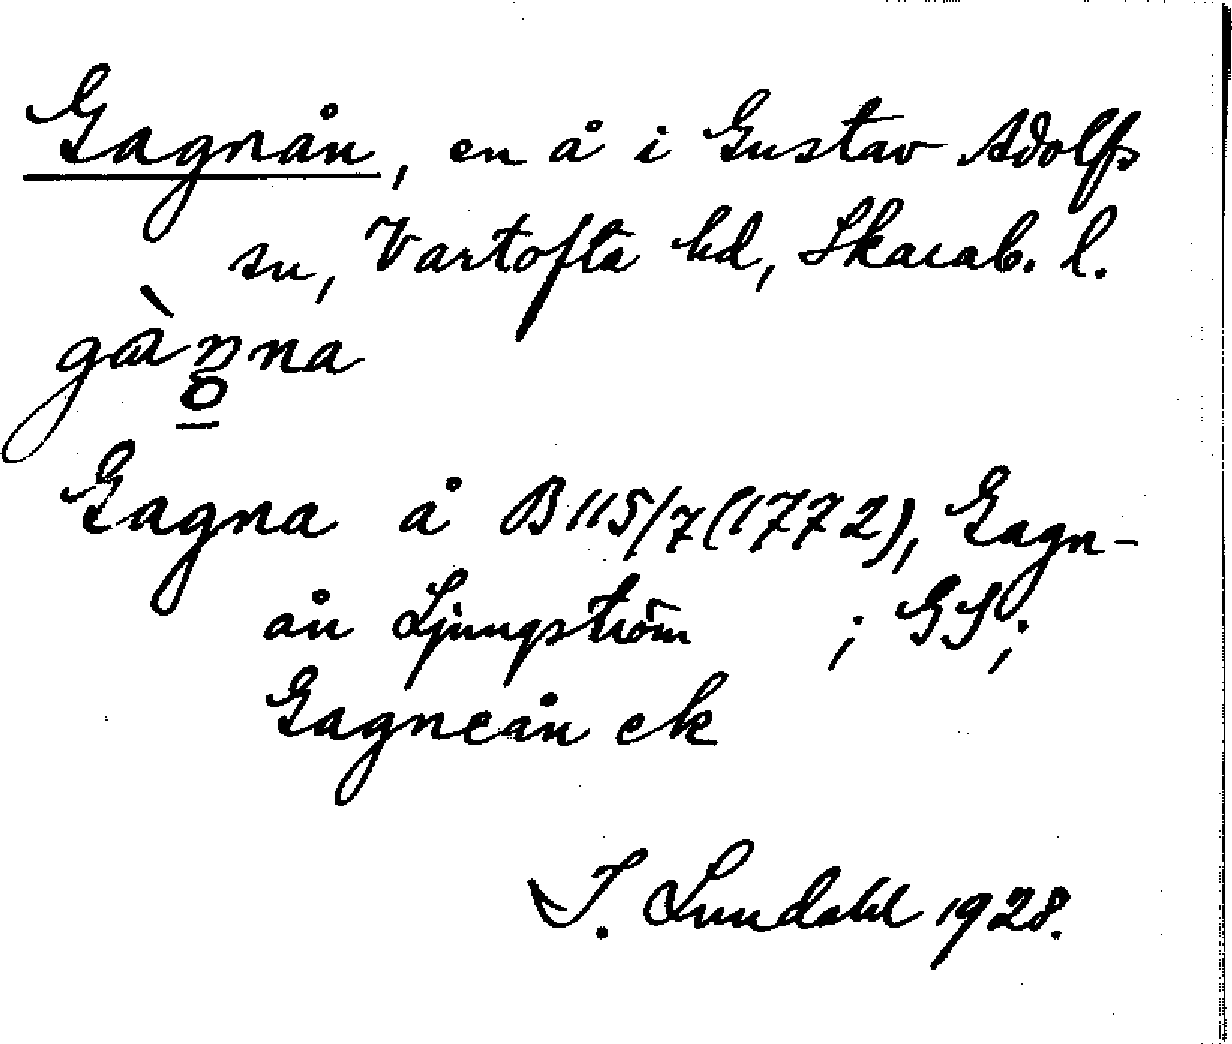 Gagnån, en å i Gustav Adolfs
sn, Vartofta hd, Skarab. l.
gàŋna
Gagna å B 115/7 (1772), Gagn-
ån Ljungström ; GS;
Gagneån ek
I. Lundahl 1928.